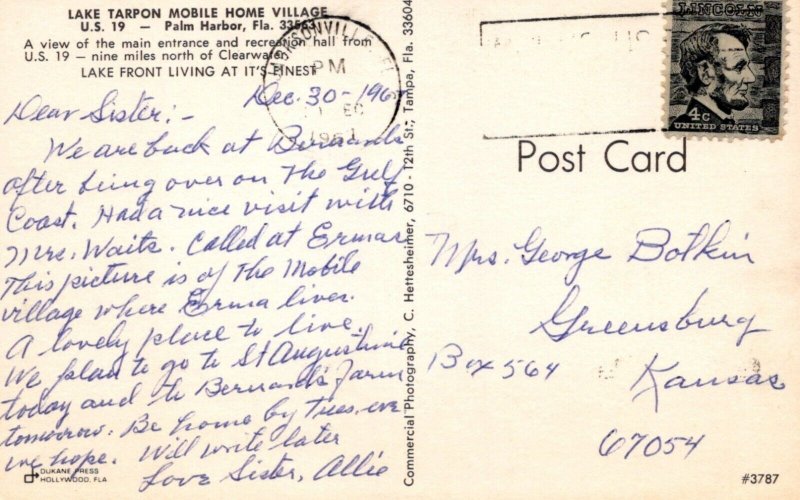 LAKE TARPON MOBILE HOME VILLAGE
U.S. 19 — Palm Harbor, Fla. 33563
A view of the main entrance and recreation hall from
U.S. 19 — nine miles north of Clearwater
LAKE FRONT LIVING AT IT'S FINEST
Dec. 30-196
Dear Sister:-
We are back at Bernards
after being over on The Gulf
Coast. Had a nice visit with
Mrs. Waits. Called at Ermas
This picture is of The Mobile
village where Erma lives.
A lovely place to live.
We plan to go to St Augustine
today and to Bernards Farm
tomorrow. Be home by tues. eve
we hope. Will write later
Love Sister, Allie
DUKANE PRESS
HOLLYWOOD, FLA
Commercial Photography, C. Hettesheimer, 6710 - 12th St., Tampa, Fla. 33604
JACKSONVILLE, FL
PM
DEC
LINCOLN
4c
UNITED STATES
Post Card
Mrs. George Botkin
Greensburg
Box 564
Kansas
67054
#3787